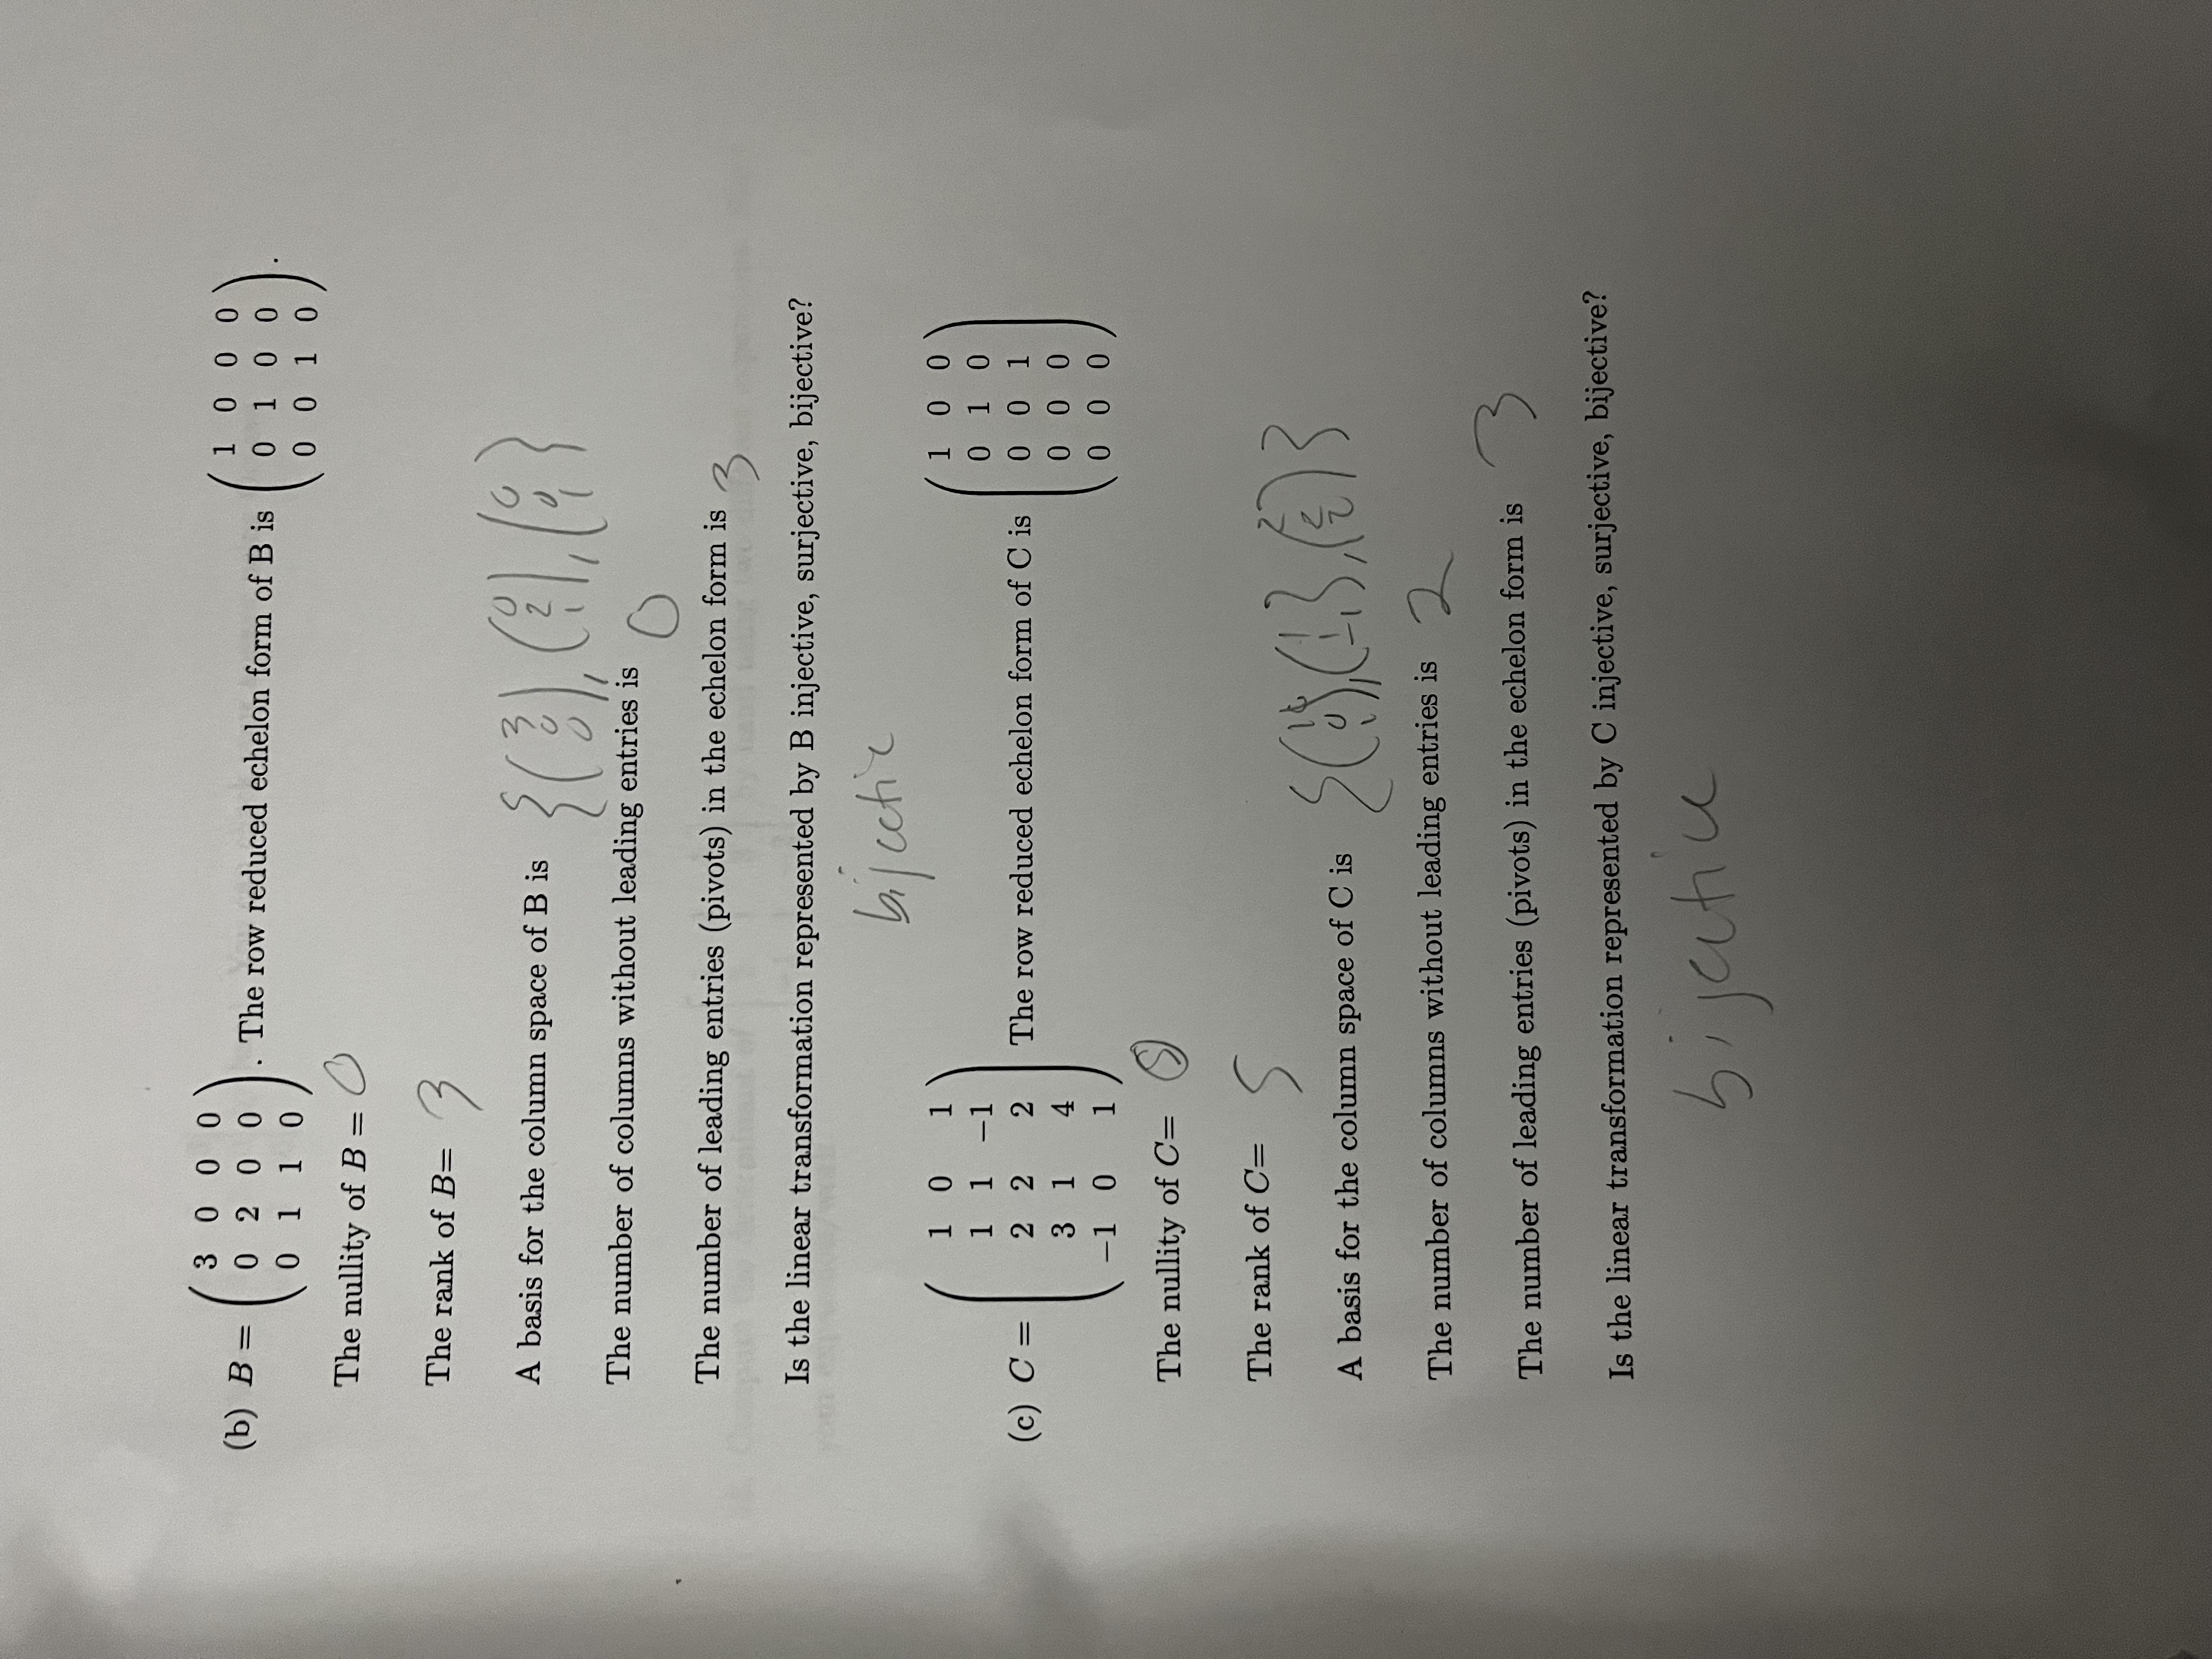 (b) B = ( 3 0 0 0
0 2 0 0
0 1 1 0 ). The row reduced echelon form of B is ( 1 0 0 0
0 1 0 0
0 0 1 0 ).
The nullity of B = 0
The rank of B= 3
A basis for the column space of B is { ( 3 0 0 ), ( 0 2 1 ), ( 0 0 1 }
The number of columns without leading entries is 0
The number of leading entries (pivots) in the echelon form is 3
Is the linear transformation represented by B injective, surjective, bijective?
bijective
(c) C = ( 1 0 1
1 1 −1
2 2 2
3 1 4
−1 0 1 ) The row reduced echelon form of C is ( 1 0 0
0 1 0
0 0 1
0 0 0
0 0 0 )
The nullity of C=
The rank of C= 5
A basis for the column space of C is { ( 1 0 1 ), ( 1 1 -1 }, ( 2 2 2 ) }
The number of columns without leading entries is 2
The number of leading entries (pivots) in the echelon form is 3
Is the linear transformation represented by C injective, surjective, bijective?
bijective